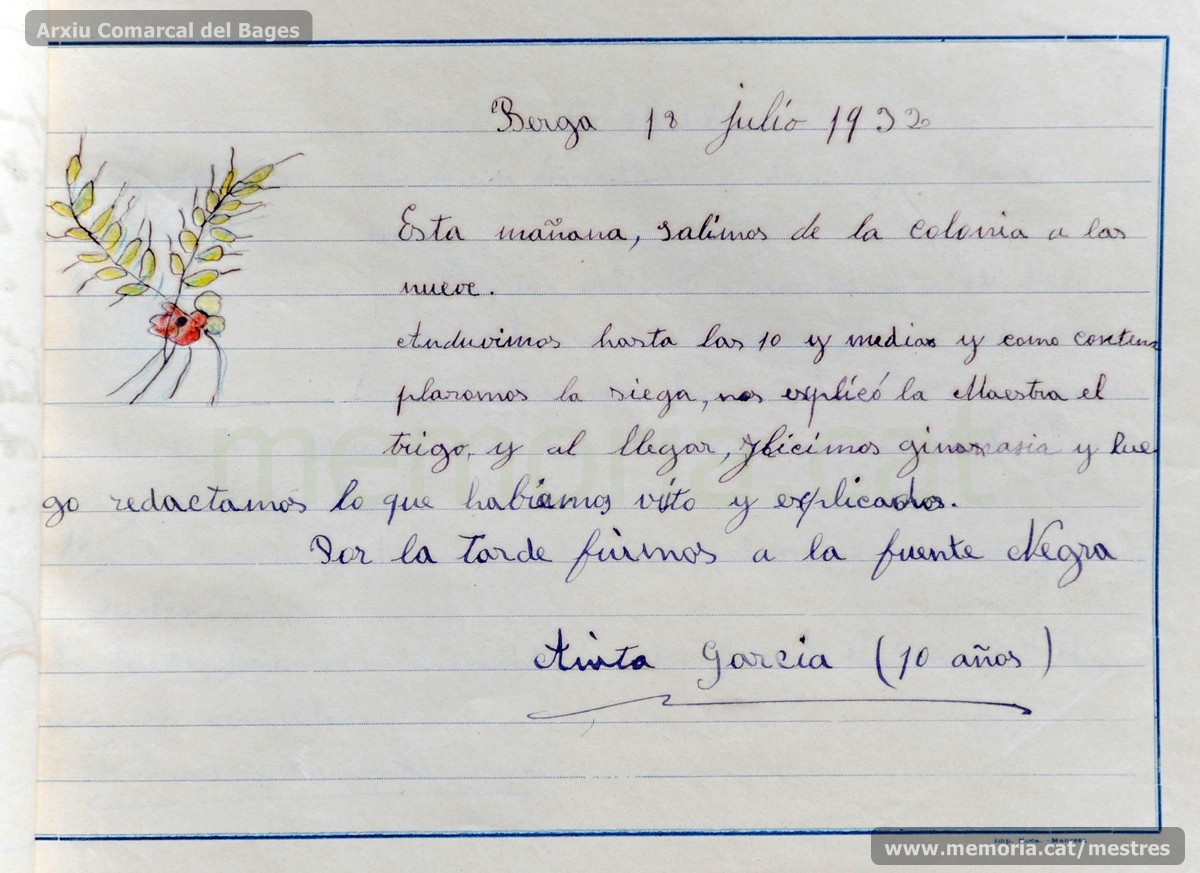 Arxiu Comarcal del Bages
Berga 18 julio 1932
Esta mañana, salimos de la colonia a las
nueve.
Anduvimos hasta las 10 y media y como contem
plaramos la siega, nos explicó la Maestra el
trigo, y al llegar, hicimos gimnasia y lue
go redactamos lo que habiamos visto y explicados.
Por la tarde fuimos a la fuente Negra
Anita Garcia (10 años)
memoria.cat
www.memoria.cat/mestres